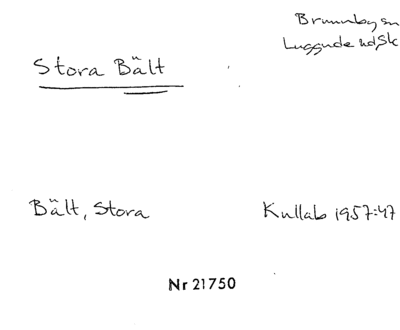 Brunnby sn
Luggude hd Sk
Stora Bält
Bält, Stora
Kullab 1957:47
Nr 21750